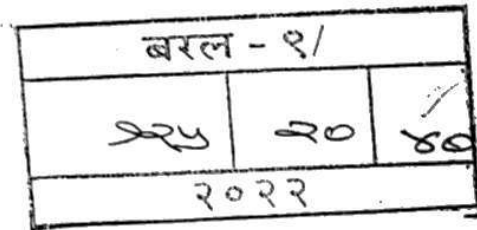 बरल - १/
२२५ २० ४०
२०२२